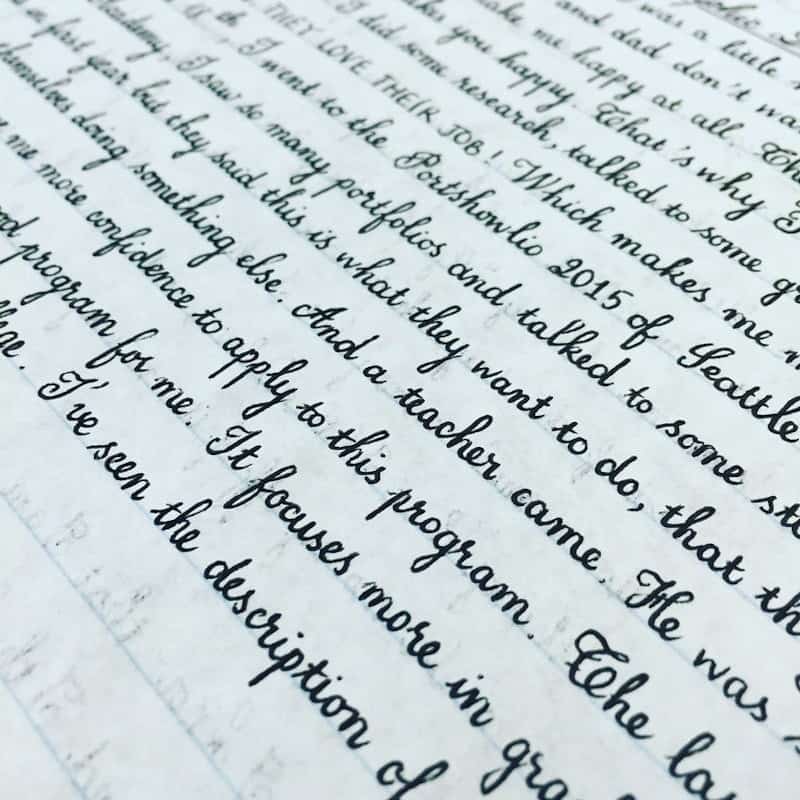 was a little
and dad don't
me happy at all.
you happy. That's why I
I did some research, talked to some
THEY LOVE THEIR JOB! Which makes me
I went to the Portshowlio 2015 of Seattle
Academy, I saw so many portfolios and talked to some
first year but they said this is what they want to do, that
themselves doing something else. And a teacher came. He was
me more confidence to apply to this program. The
program for me. It focuses more in
I've seen the description of